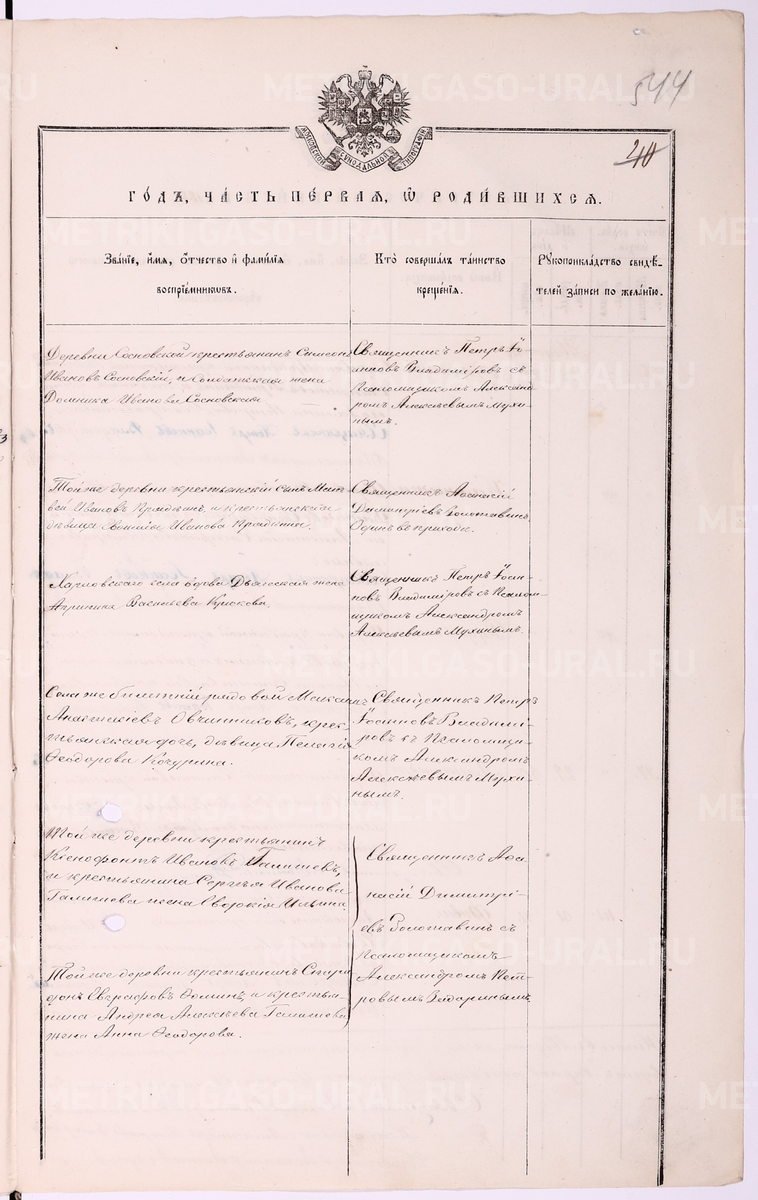 544
40
МОСКОВСКОЙ СѴНОДАЛЬНОЙ ТИПОГРАФІИ
ГО́ДЪ, ЧА́СТЬ ПЕ́РВАЯ, Ѽ РОДИ́ВШИХСЯ.
Зва́ніе, и́мя, о́тчество и фами́лія
воспріе́мниковъ.
Кто̀ соверша́лъ та́инство
креще́нія.
Рукоприкла́дство свидѣ́-
телей за́писи по жела́нію.
Деревни Сосновской крестьянинъ Симеонъ
Ивановъ Сосновскій, и Солдатская жена
Домника Иванова Сосновская
Священникъ Петръ Іоан-
новъ Владиміровъ съ
Псаломщикомъ Алексан-
ромъ Алексѣевымъ Мухи-
нымъ.
Той же деревни крестьянскій сынъ Мат-
вей Ивановъ и крестьянская
дѣвица Иванова
Священникъ Аѳанасій
Димитріевъ Золотавинъ
Одинъ въ приходѣ.
Харловскаго села вдова Дьяческая жена
Агрипина Васильева
Священникъ Петръ Іоан-
новъ Владиміровъ съ Псалом-
щикомъ Александромъ
Алексѣевымъ Мухинымъ.
Села же билетный рядовой Максимъ
Анастасіевъ Овчинниковъ, крес-
тьянская дочь, дѣвица Пелагія
Ѳеодорова Кочурина.
Священникъ Петръ
Іоанновъ Владимі-
ровъ съ Псаломщи-
комъ Александромъ
Алексѣевымъ Мухи-
нымъ.
Той же деревни крестьянинъ
Ксенофонтъ Ивановъ Галишевъ,
и крестьянина Сергѣя Иванова
Галишева жена Евдокія Ильина.
Священникъ Аѳа-
насій Димитрі-
евъ Золотавинъ съ
псаломщикомъ
Александромъ Пет-
ровымъ
Той же деревни крестьянинъ Спири-
донъ Евграфовъ Ѳоминъ, и крестья-
нина Андрея Алексѣева Галишева
жена Анна Ѳеодорова.
METRIKI.GASO-URAL.RU